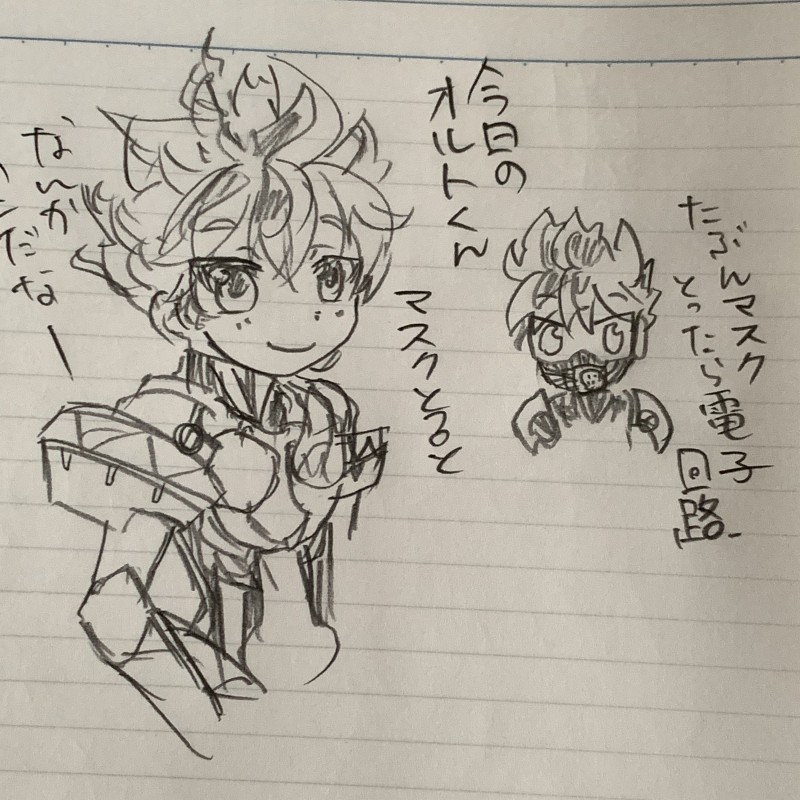 今日の
オルトくん
たぶんマスク
とったら電子
回路
マスクとると
なんか
だな